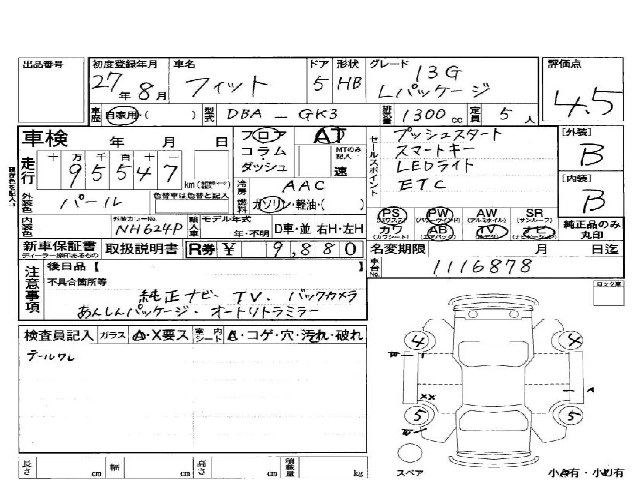 出品番号 初度登録年月 車名 ドア 形状 グレード 評価点
27年 8月 フィット 5 HB 13G Lパッケージ 4.5
車歴 自家用・( ) 型式 DBA-GK3 排気量 1300cc 定員 5人
車検 年 月 日 フロア AT セールスポイント プッシュスタート [外装]
走行 十万千百十一 コラム・ MTのみ記入 スマートキー B
95547 km ダッシュ 速 LEDライト [内装]
外装色 パール 色替車は色替と記入 冷房 AAC ETC B
燃料 ガソリン・軽油・( )
内装色 外装カラーNo. NH624P 輸入車 モデル年式 年・不明 D車・並 右H・左H
PS PW AW SR
カワ AB TV ナビ 純正品のみ丸印
新車保証書 取扱説明書 R券 ¥ 9,880 名変期限 月 日迄
ディーラー捺印があるもの
注意事項 後日品[ ] 車台No. 1116878
不具合箇所等
純正ナビ・TV、バックカメラ
あんしんパッケージ・オートリトラミラー
検査員記入 ガラス A・X要ス 室内シート A・コゲ・穴・汚れ・破れ
テールワレ
4 4
XX A
5 5
スペア
長さ cm 幅 cm 高さ cm 積載量 kg 小A有・小U有